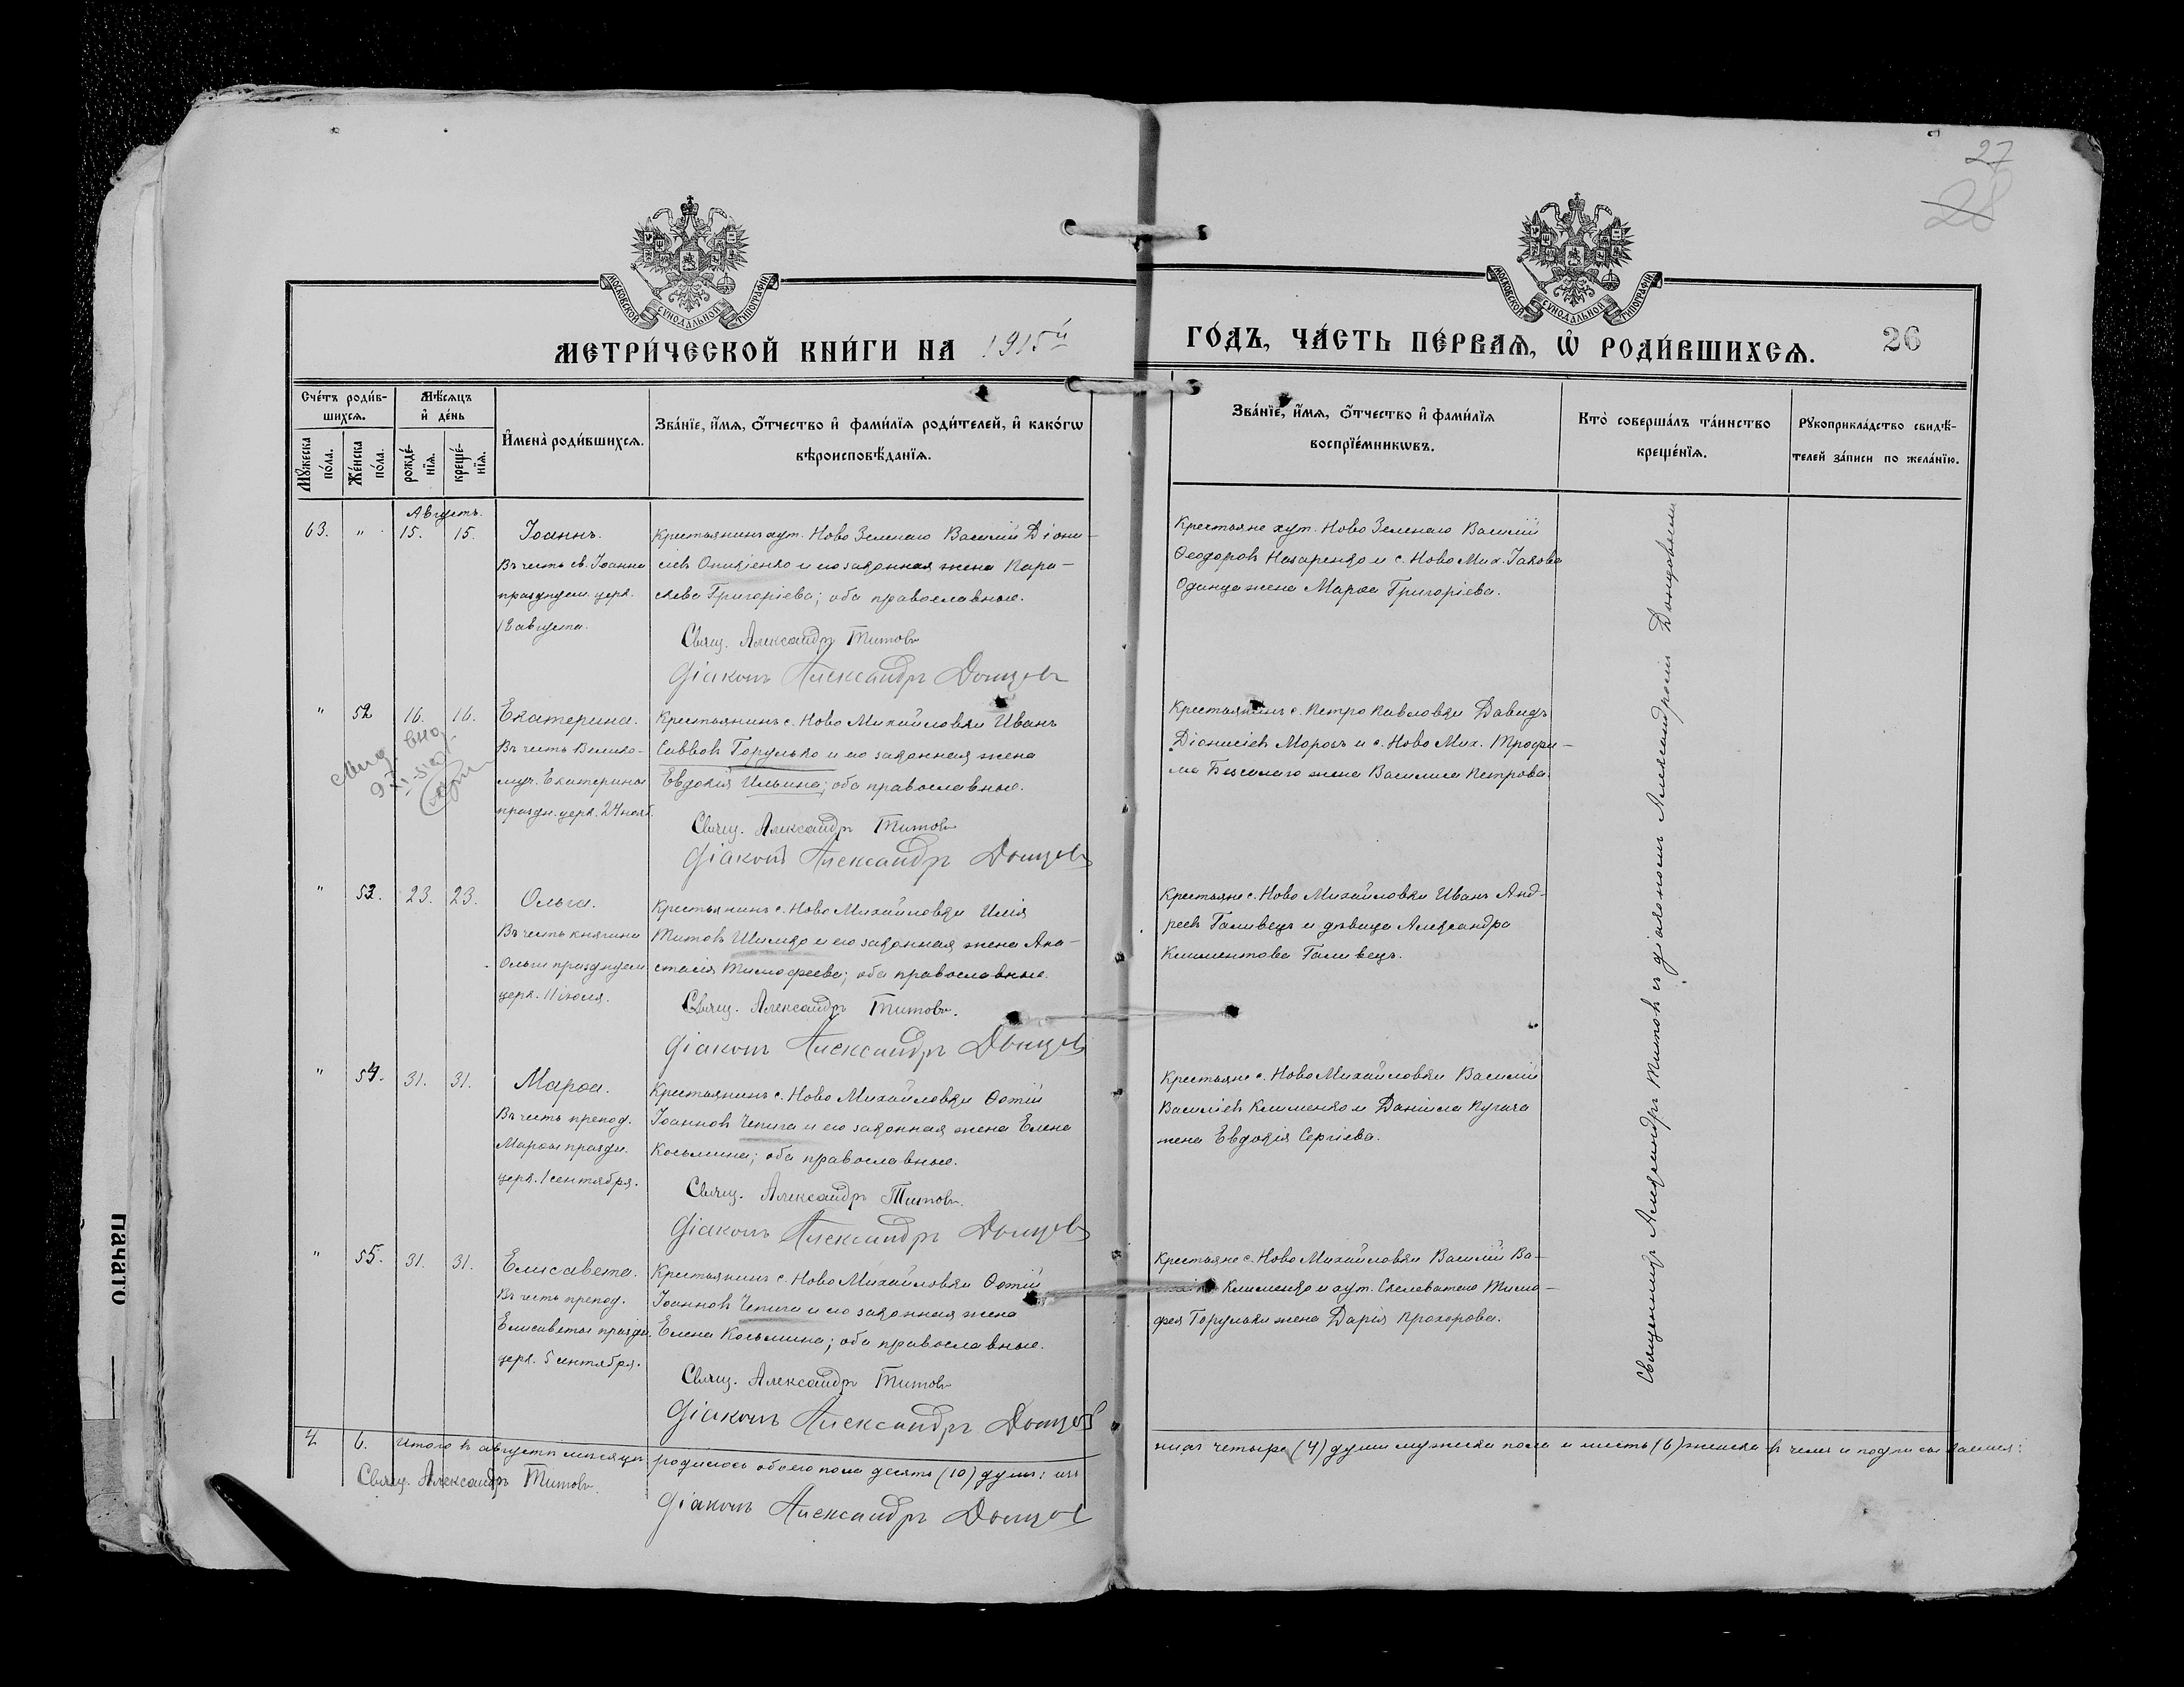 27
28
МОСКОВСКОЙ СѴНОДАЛЬНОЙ ТИПОГРАФІИ
МОСКОВСКОЙ СѴНОДАЛЬНОЙ ТИПОГРАФІИ
МЕТРИ́ЧЕСКОЙ КНИ́ГИ НА 1915й
ГО́ДЪ, ЧА́СТЬ ПЕ́РВАѦ, Ѡ҆ РОДИ́ВШИХСѦ.
26
Сче́тъ роди́в-
шихсѧ.
Мѣ́сѧцъ
и҆ де́нь
Мꙋ́жеска по́ла.
Же́нска по́ла.
рожде́-
нїѧ.
креще́-
нїѧ.
И҆мена̀ роди́вшихсѧ.
Зва́нїе, и҆́мѧ, ѻ҆́тчество и҆ фами́лїѧ роди́телей, и҆ како́гѡ
вѣроисповѣ́данїѧ.
Зва́нїе, и҆́мѧ, ѻ҆́тчество и҆ фами́лїѧ
воспрїе́мникѡвъ.
Кто̀ соверша́лъ та́инство
креще́нїѧ.
Рꙋкоприкла́дство свидѣ́-
телей за́писи по жела́нїю.
Августъ.
63. " 15. 15.
Іоаннъ.
Въ честь св. Іоанна
празднуем. церк.
18 августа.
Крестьянинъ хут. Ново Зеленаго Василій Діони-
сіевъ Онисіенко и его законная жена Пара-
скева Григоріева; оба православные.
Свящ. Александръ Титовъ
Діаконъ Александръ Донцовъ
Крестьяне хут. Ново Зеленаго Василій
Ѳеодоровъ Назаренко и с. Ново Мих. Іакова
Одинца жена Марѳа Григоріева.
" 52 16. 16.
Екатерина.
Въ честь Велико-
муч. Екатерины
праздн. церк. 24 нояб.
Крестьянинъ с. Ново Михайловки Иванъ
Саввовъ Горулько и его законная жена
Евдокія Ильина; оба православные.
Свящ. Александръ Титовъ
Діаконъ Александръ Донцовъ
Крестьянинъ с. Петро Павловки Давидъ
Діонисіевъ Морозъ и с. Ново Мих. Трофи-
ма жена Василиса Петрова.
" 53. 23. 23.
Ольга.
Въ честь княгини
Ольги празднуем.
церк. 11 іюля.
Крестьянинъ с. Ново Михайловки Илія
Титовъ Шилко и его законная жена Ана-
стасія Тимоѳеева; оба православные.
Свящ. Александръ Титовъ.
Діаконъ Александръ Донцовъ
Крестьяне с. Ново Михайловки Иванъ Анд-
реевъ Галивецъ и дѣвица Александра
Климентова Галивецъ.
" 54. 31. 31.
Марѳа.
Въ честь препод.
Марѳы праздн.
церк. 1 сентября.
Крестьянинъ с. Ново Михайловки Ѳотій
Іоанновъ Чепига и его законная жена Елена
Косьмина; оба православные.
Свящ. Александръ Титовъ.
Діаконъ Александръ Донцовъ
Крестьяне с. Ново Михайловки Василій
Василіевъ Клименко и Даніила Пугача
жена Евдокія Сергіева.
" 55. 31. 31.
Елисавета.
Въ честь препод.
Елисаветы праздн.
церк. 5 сентября.
Крестьянинъ с. Ново Михайловки Ѳотій
Іоанновъ Чепига и его законная жена
Елена Косьмина; оба православные.
Свящ. Александръ Титовъ
Діаконъ Александръ Донцовъ
Крестьяне с. Ново Михайловки Василій Ва-
Клименко и хут. Скелеватаго Тимо-
фея Горульки жена Дарія Прохорова.
Священникъ Александръ Титовъ и діакономъ Александромъ Донцовымъ
4 6. Итого въ августѣ мѣсяцѣ родилось обоего пола десять (10) душъ: изъ
нихъ четыре (4) души мужеска пола и шесть (6) женска въ чемъ и подписываемся:
Свящ. Александръ Титовъ.
Діаконъ Александръ Донцов
Начато